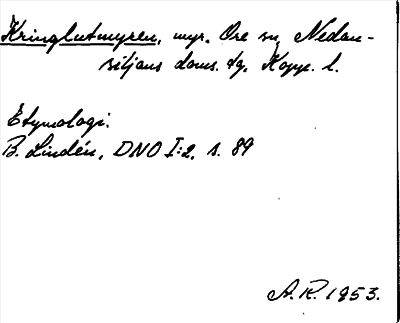 Kringlutmyren, myr. Ore sn, Nedan-
siljans doms. tg, Kopp. l.
Etymologi.
B. Lindén, DNO I:2, s. 89
A.R. 1953.